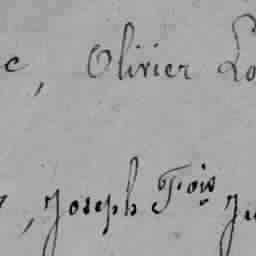 c, Olivier Lo
, Joseph Fois Ju